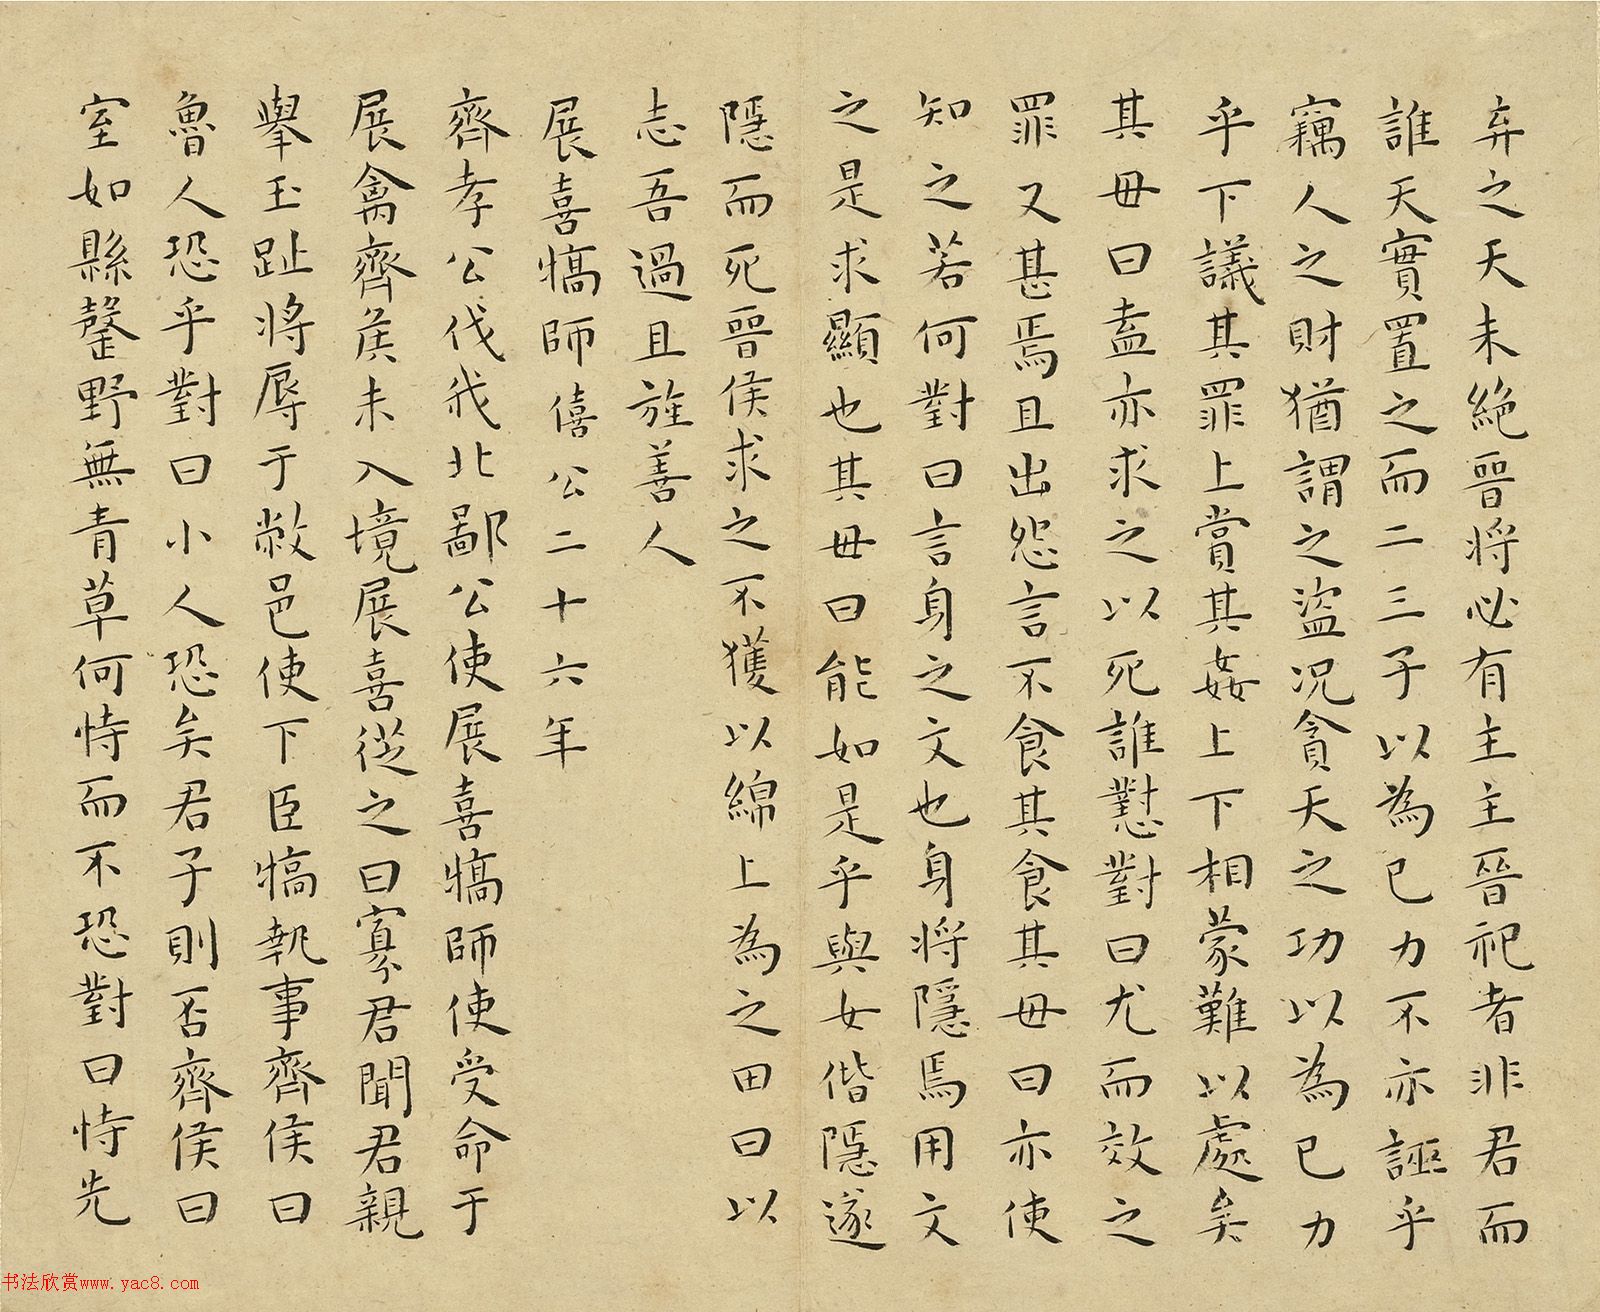 弃之天未絶晉将必有主主晉祀者非君而
誰天實置之而二三子以為己力不亦誣乎
竊人之財猶謂之盜况貪天之功以為己力
乎下議其罪上賞其姦上下相蒙難以處矣
其毋曰盍亦求之以死誰懟對曰尤而效之
罪又甚焉且出怨言不食其食其毋曰亦使
知之若何對曰言身之文也身将隱焉用文
之是求顯也其毋曰能如是乎與女偕隱遂
隱而死晉侯求之不獲以綿上為之田曰以
志吾過且旌善人
展喜犒師僖公二十六年
齊孝公伐我北鄙公使展喜犒師使受命于
展禽齊矦未入境展喜從之曰寡君聞君親
舉玉趾将辱于敝邑使下臣犒執事齊侯曰
魯人恐乎對曰小人恐矣君子則否齊侯曰
室如縣罄野無青草何恃而不恐對曰恃先
书法欣赏www.yac8.com